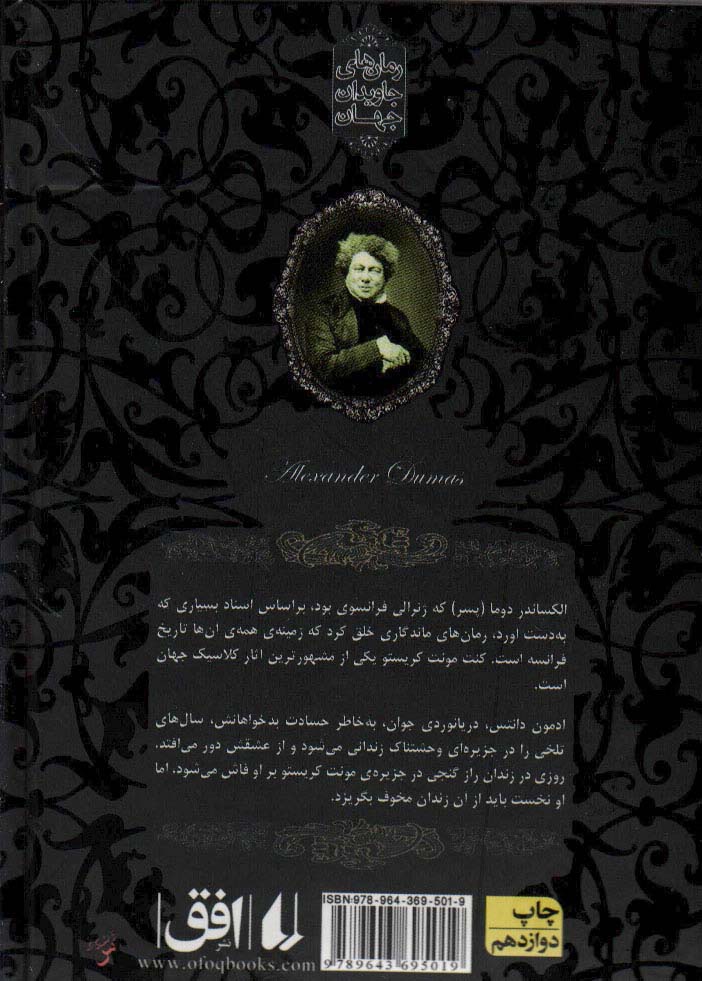 رمان‌های
جاویدان
جهان
Alexander Dumas
الکساندر دوما (پسر) که ژنرالی فرانسوی بود، براساس اسناد بسیاری که
به‌دست آورد، رمان‌های ماندگاری خلق کرد که زمینه‌ی همه‌ی آن‌ها تاریخ
فرانسه است. کنت مونت کریستو یکی از مشهورترین آثار کلاسیک جهان
است.
ادمون دانتس، دریانوردی جوان، به‌خاطر حسادت بدخواهانش، سال‌های
تلخی را در جزیره‌ای وحشتناک زندانی می‌شود و از عشقش دور می‌افتد.
روزی در زندان راز گنجی در جزیره‌ی مونت کریستو بر او فاش می‌شود. اما
او نخست باید از آن زندان مخوف بگریزد.
نشر افق
www.ofoqbooks.com
ISBN:978-964-369-501-9
9 789643 695019
چاپ
دوازدهم